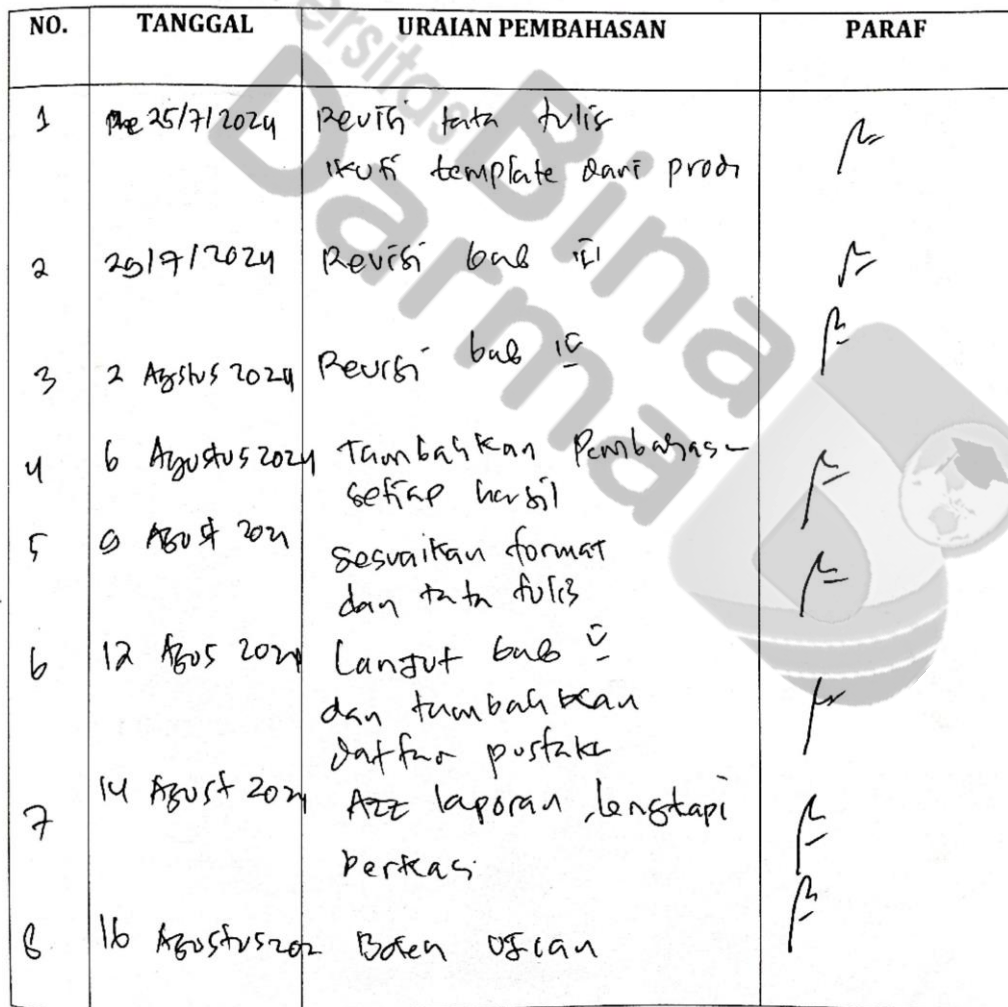 NO. TANGGAL URAIAN PEMBAHASAN PARAF
Universitas
Bina
Darma
1 25/7/2024 Revisi tata tulis
ikuti template dari prodi
2 29/7/2024 Revisi bab III
3 2 Agustus 2024 Revisi bab
4 6 Agustus 2024 Tambahkan Pembahasan
setiap hasil
5 9 Agust 2024 sesuaikan format
dan tata tulis
6 12 Agus 2024 Lanjut bab V
dan tambahkan
daftar pustaka
7 14 Agust 2024 Acc laporan, lengkapi
berkas
8 16 Agustus 202 Boleh ujian